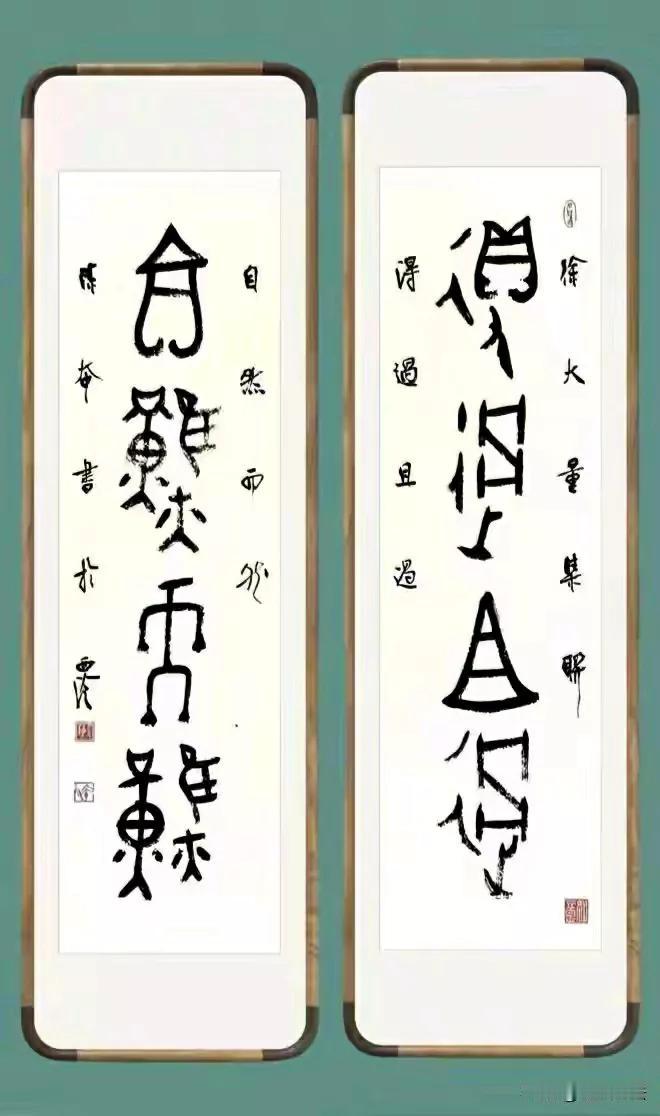 徐大量集聯
得過且過
得過且過
自然而然
自然而然
書於